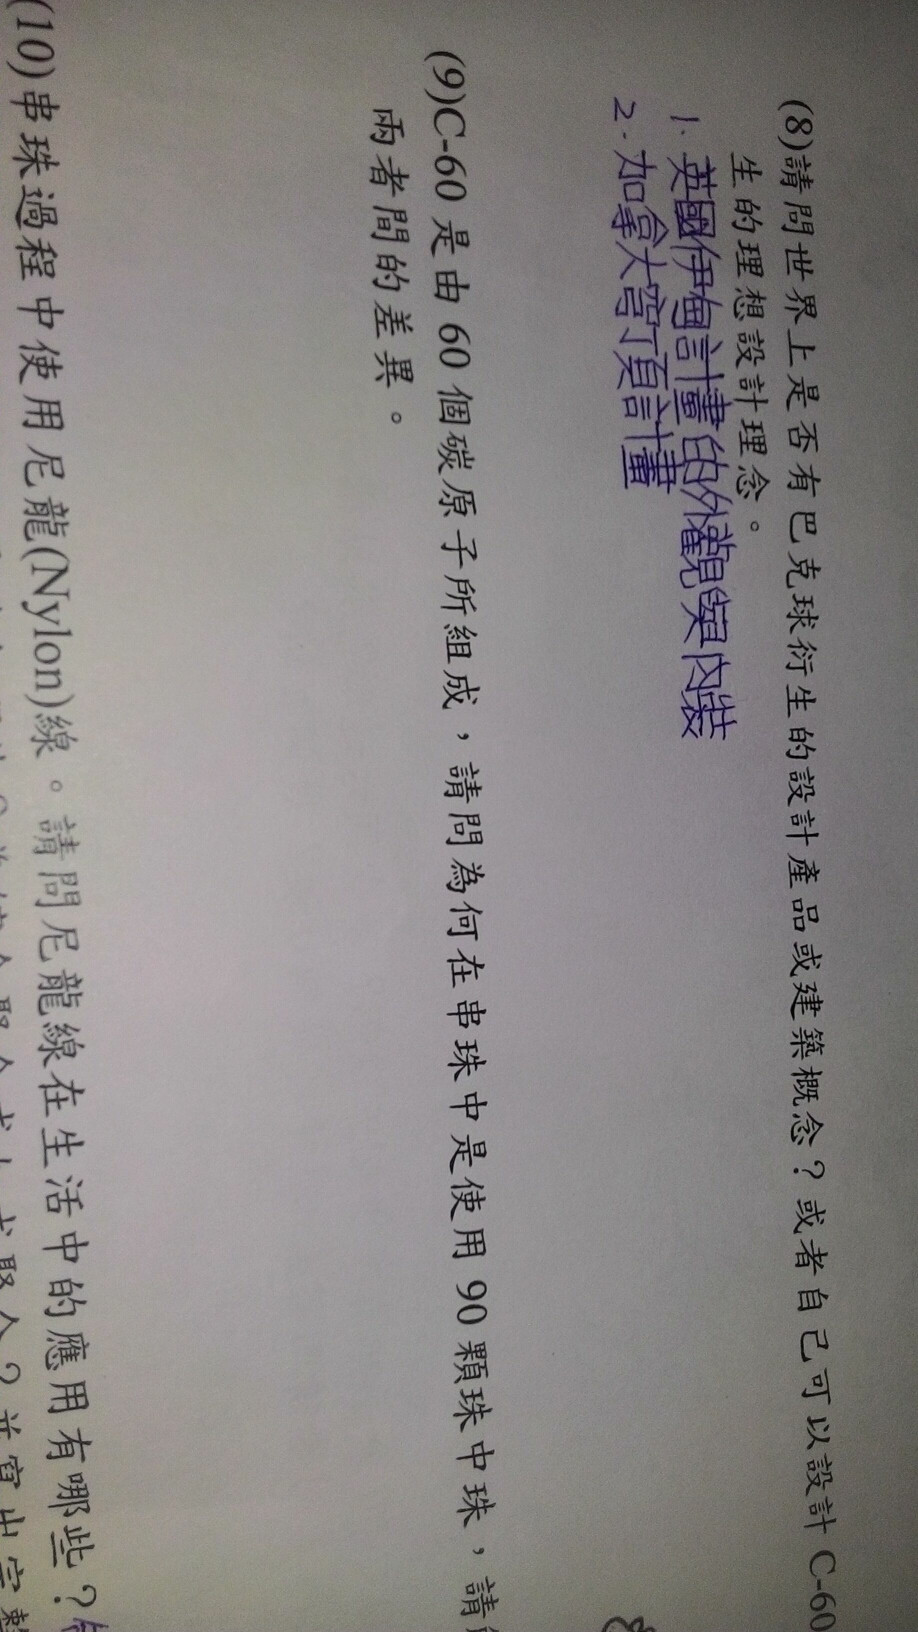 (8)請問世界上是否有巴克球衍生的設計產品或建築概念？或者自己可以設計 C-60
生的理想設計理念。
1. 英國伊甸計畫的外觀與內裝
2. 加拿大穹頂計畫
(9)C-60 是由 60 個碳原子所組成，請問為何在串珠中是使用 90 顆珠中珠，請
兩者間的差異。
(10)串珠過程中使用尼龍(Nylon)線。請問尼龍線在生活中的應用有哪些？